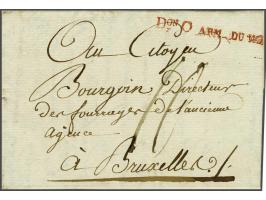 Don O ARM. DU
Au Citoyen
Bourgoin Directeur
des fourrages de l'ancienne
agence
à Bruxelles